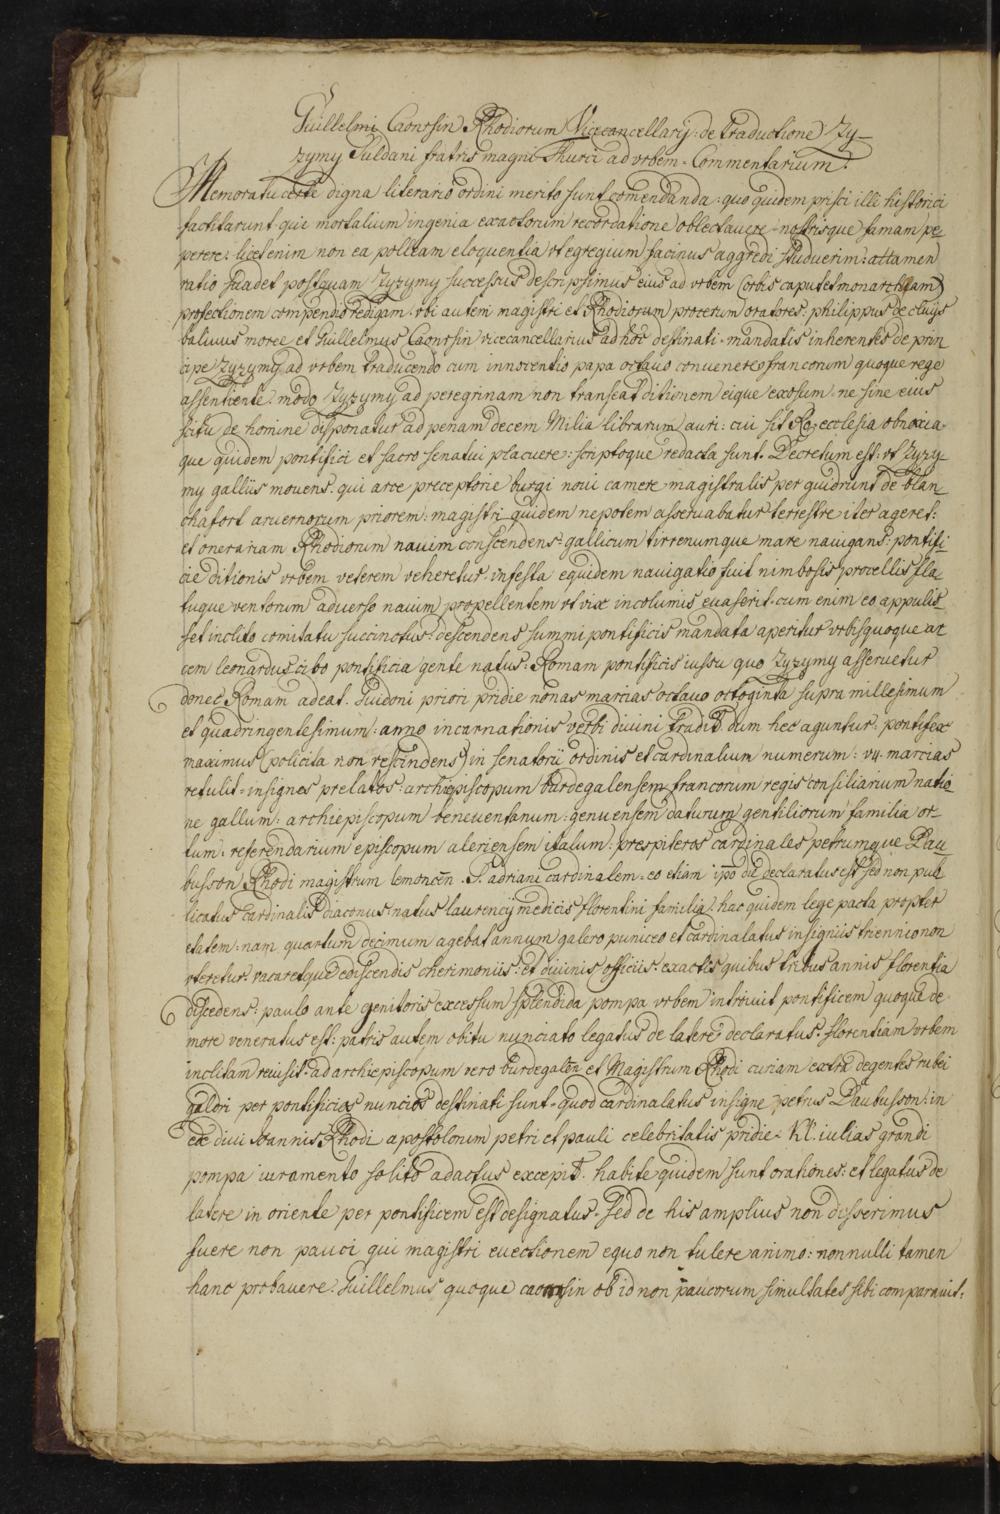 Guillelmi Caonrsin Rhodiorum Vicecancellarij: de traductione Zy-
zymy Suldani fratris magni Thurci ad vrbem. Commentarium.
Memoratu certe digna literario ordini merito sunt comendanda: quo quidem prisci illi historici
factitarunt. qui mortalium ingenia exactorum recordatione oblectauere. nostrisque famam pe
perere: licet enim non ea polleam eloquentia vt egregium facinus aggredi studuerim: attamen
ratio suadet postquam Zyzymy successus descripsimus eius ad vrbem (orbis caput et monarchiam)
profectionem compendio redigam. vbi autem magistri et Rhodiorum procerum oratores: philippus de cluys
baliuus moree et Guillelmus Caonrsin vicecancellarius ad hoc destinati. mandatis inherentes de prin
cipe Zyzymy ad vrbem traducendo cum innocentio papa octauo conuenere francorum quoque rege
assentiente. modo Zyzymy ad peregrinam non transeat ditionem eique exosum. ne sine eius
scitu de homine disponatur ad penam decem Milia librarum auri: cui sit Ro. ecclesia obnoxia.
que quidem pontifici et sacro senatui placuere: scriptoque redacta sunt. Decretum est: vt Zyzy-
my galliis mouens. qui arce preceptorie burgi noui camere magistralis per guidonem de blan
chafort aruernorum priorem: magistri quidem nepotem asseruabatur terrestre iter ageret:
et onerariam Rhodiorum nauim conscendens: gallicum tirrenumque mare nauigans: pontifi-
cie ditionis vrbem veterem veheretur. infesta equidem nauigatio fuit nimbosis procellis fla
tuque ventorum aduerso nauim propellentem vt vix incolumis euaserit. cum enim eo appulis
set inclito comitatu succinctus. descendens summi pontificis mandata aperitur vrbis quoque ar
cem leonardus cibo pontificia gente natus: Romam pontificis iussu quo Zyzymy asseruetur
donec Romam adeat. Guidoni priori pridie nonas marcias octauo octoginta supra millesimum
et quadringentesimum: anno incarnationis verbi diuini tradit. dum hec aguntur: pontifex
maximus (policita non rescindens) in senatorii ordinis et cardinalium numerum: vij. marcias
retulit. insignes prelatos: archiepiscopum burdegalensem francorum regis consiliarium natio
ne gallum: archiepiscopum beneuentanum: genuensem daturum gentiliorum familia or-
tum: referendarium episcopum aleriensem italum: prespiteros cardinales petrumque Dau
busson Rhodi magistrum lemoncen. S. adriani cardinalem. eo etiam ipo die declaratus est sed non pub
licatus cardinalis diaconus: natus laurencij medicis florentini familia: hac quidem lege pacta propter
etatem: nam quartum decimum agebat annum galero puniceo et cardinalatus insigniis triennio non
vteretur. vacaretque ediscendis cherimoniis: et diuinis officiis. exactis quibus tribus annis florentia
discedens: paulo ante genitoris excessum splendida pompa vrbem introiuit pontificem quoque de
more veneratus est: patris autem obitu nunciato legatus de latere declaratus. florentiam vrbem
inclitam reuisit. ad archiepiscopum vero burdegalen et Magistrum Rhodi curiam extra degentes rubei
galeri per pontificios nuncios destinati sunt. quod cardinalatus insigne petrus Daubusson: in
ede diui Ioannis Rhodi apostolorum petri et pauli celebritatis pridie. Kl. iulias grandi
pompa iuramento solito adactus excepit. habite quidem sunt orationes: et legatus de
latere in oriente per pontificem est designatus. sed de his amplius non disserimus
fuere non pauci qui magistri euectionem equo non tulere animo: nonnulli tamen
hanc probauere. Guillelmus quoque caonrsin ob id non paucorum simultates sibi comparauit.